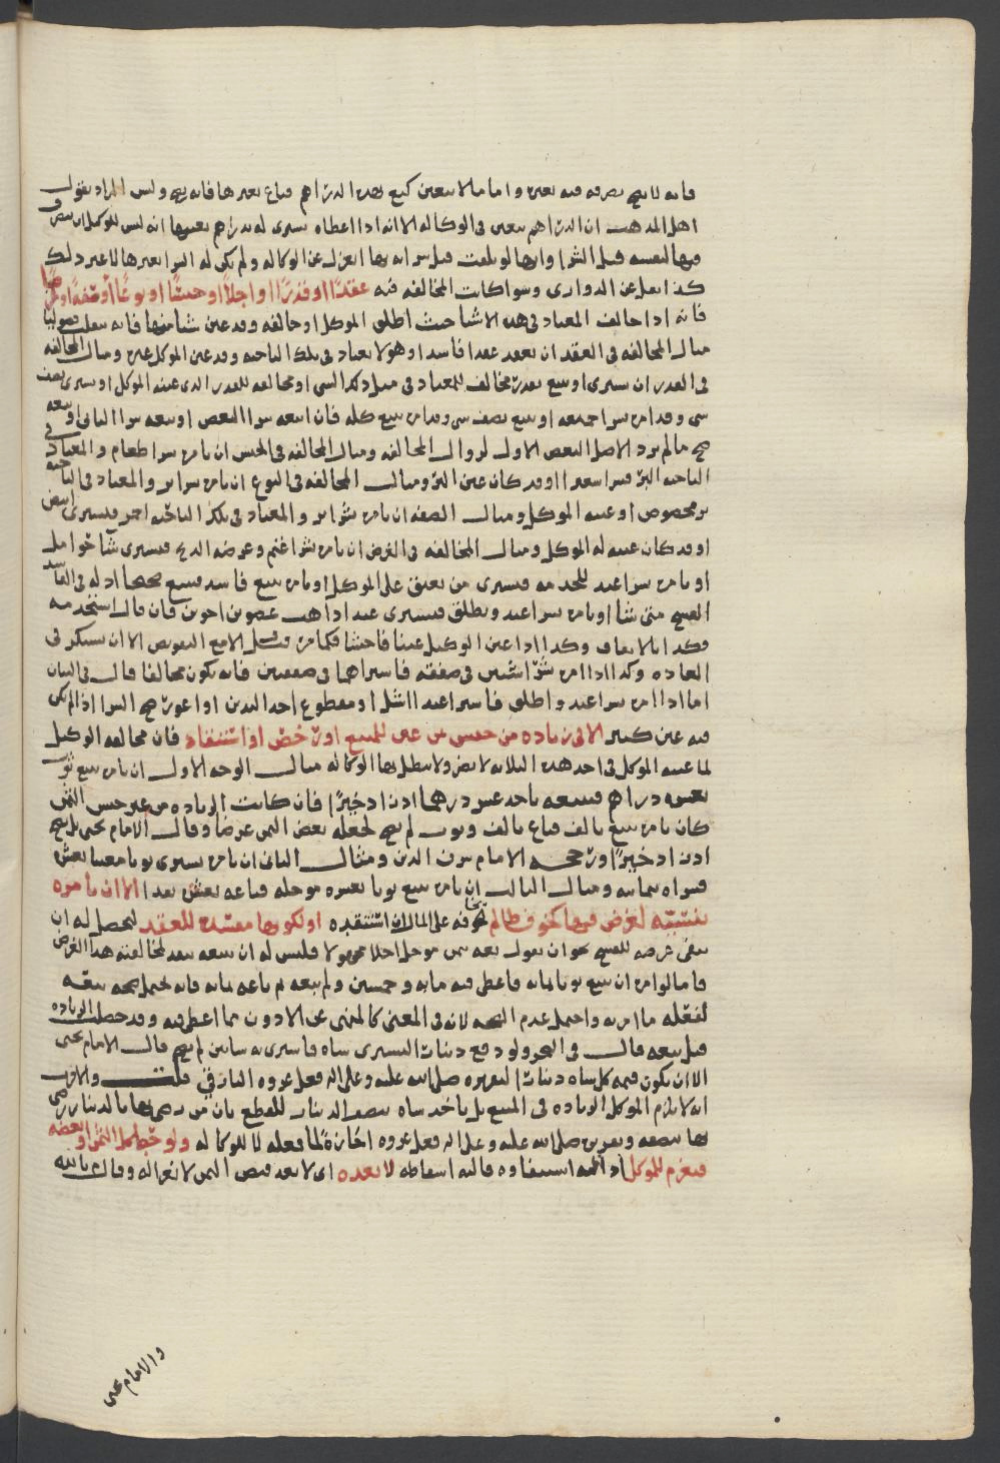 فانه لا يصح تصرفه فيه بغيره واما ما لا يتعين كبع بهذه الدراهم فباع بغيرها فانه يصح وليس المراد بقول
اهل المذهب ان الدراهم تتعين في الوكالة الا انه اذا اعطاه يشتري له بدراهم بعينها انه ليس للوكيل ان يتصرف
فيها لنفسه قبل الشرا وانها لو تلفت قبل شرائه بها انعزل عن الوكالة ولم يكن له الشرا بغيرها لا غير ذلك
كذا نقل عن الدواري وسوا كانت المخالفة فيه عقدًا او قدرًا او اجلًا او جنسًا او نوعًا او صفةً او غرضًا
فانه اذا خالف المعتاد في هذه الاشيا حيث اطلق الموكل او خالفه وقد عين شيا منها فانه ينقلب فضوليا
مثال المخالفة في العقد ان يعقد عقدا فاسدا وهو لا يعتاد في تلك الناحية وقد عين الموكل غيره ومثال المخالفة
في القدر ان يشتري او يبيع بقدر مخالف للمعتاد في مثل ذلك الشي او مخالف للقدر الذي عينه الموكل او يشتري نصف
شي وقد امر بشرا جميعه او يبيع نصف شي وقد امر ببيع كله فان اتبعه شرا البعض او بيعه شرا الثاني او بيعه
صح ما لم يرد الاصل البعض الاول لزوال المخالفة ومثال المخالفة في الجنس ان يامر بشرا طعام والمعتاد في
الناحية البر فشرا شعيرا او قد كان عين البر ومثال المخالفة في النوع ان يامر بشرا بر والمعتاد في الناحية
بر مخصوص او عينه الموكل ومثال الصفة ان يامر بشرا بر والمعتاد في تلك الناحية احمر فيشتري ابيض
او قد كان عينه له الموكل ومثال المخالفة في الغرض ان يامر بشرا غنم وغرضه الذبح فيشتري شيا حوامل
او يامر بشرا عبد للخدمة فيشتري من يعتق على الموكل او يامر ببيع فاسد فيبيع صحيحا اذ له في الفاسد
الفسخ متى شا او يامر بشرا عبد ويطلق فيشتري عبدا ذاهب عضوين اخوين فان قال استخدمه
فكذا بالاتفاق وكذا اذا غبن الوكيل غبنا فاحشا فكما مر الا مع التفويض الا ان يستكثر في
العادة وكذا اذا امر بشرا شيئين في صفقة فاشتراهما في صفقتين فانه يكون مخالفا قال في البيان
اما اذا امر بشرا عبد واطلق فاشترا عبدا اشل او مقطوع احد اليدين او اعور صح الشرا اذا لم يكن
فيه غبن كثير الا في زيادة من جنس ثمن عين للمبيع او رخص او استنقاد فان مخالفة الوكيل
لما عينه الموكل في احد هذه الثلاثة لا يضر ولا يبطل بها الوكالة مثال الوجه الاول ان يامر ببيع ثوب
بعشرة دراهم فيبيعه باحد عشر درهما اذ زاد خيرًا فان كانت الزيادة من غير جنس الثمن
كان يامر ببيع بالف فباع بالف وثوب لم يصح لجعله بعض الثمن عرضا وقال الامام يحيى بل يصح
اذ زاد خيرًا ورجحه الامام شرف الدين ومثال الثاني ان يامر يشتري ثوبا معينا بعشرة
فشراه بثمانية ومثال الثالث ان يامر ببيع ثوبا بعشرة موجلة فباعه بعشرة نقدا الا ان يامره
بنسيئة لغرض فيها كخوف ظالم يخافه على المال ان استنقده او لكونها مفسدة للعقد ليحصل له ان
يبقى غرضه للفسخ نحو ان يقول بعه بثمن موجل اجلا مجهولا فليس له ان يبيعه بنقد لمخالفته هذا الغرض
فاما لو امر ان يبيع ثوبا بمائة فاعطي فيه مائة وخمسين ولم يبعه ثم باعه بمائة فانه يحتمل صحة بيعه
لفعله ما امر به واحتمل عدم الصحة لانه في المعنى كالمنهي عن الادون مما اعطي فيه وقد حصلت الزيادة
قبل بيعه قال في البحر ولو دفع دينارا ليشتري شاة فاشترى به شاتين لم يصح قال الامام يحيى
الا ان يكون قيمة كل شاة دينارا لتقريره صلى الله عليه وعلى اله فعل عروة البارقي قلت والاقرب
انه لا يلزم الموكل الزيادة في المبيع بل ياخذ شاة بنصف الدينار للقطع بان من رضي بها بالدينار رضي
بها بنصفه وتقريره صلى الله عليه وعلى اله فعل عروة اجازة لما فعله لا للوكالة ولو حط كل الثمن او بعضه
فيغرم للموكل اذ اليه استيفاوه فاليه اسقاطه لا بعده اي لا بعد قبض الثمن لا نعزاله وقال م بالله
والامام يحيى